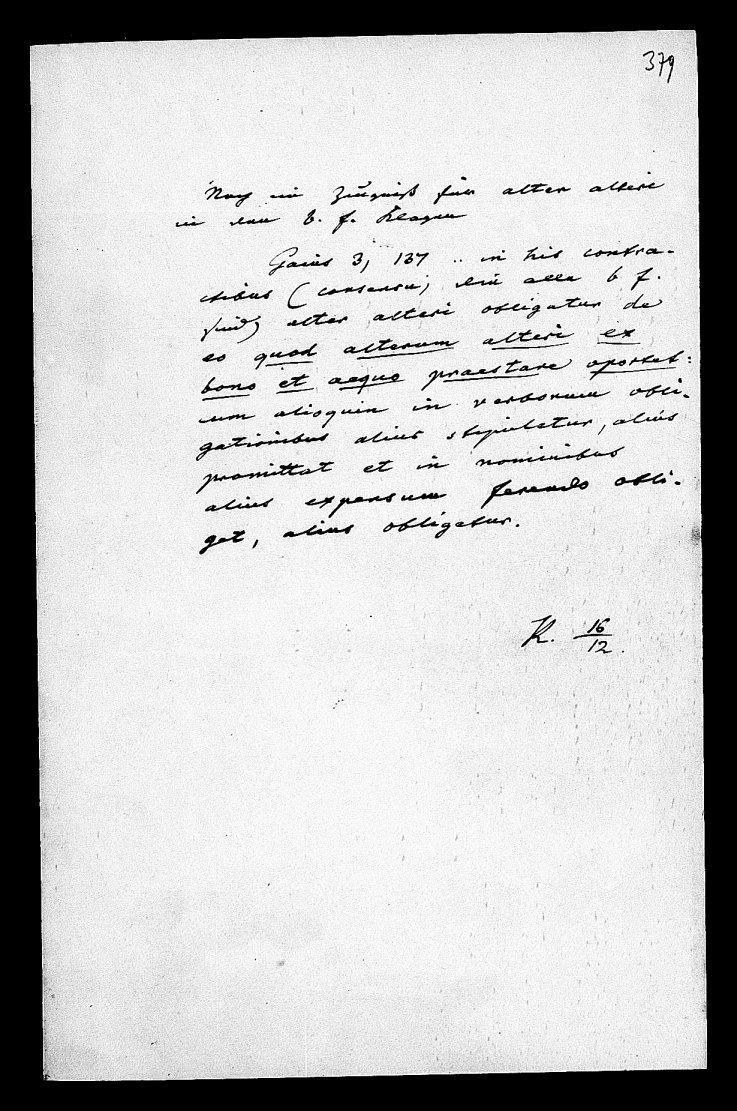 379
Noch ein Zeugniß für alter alteri
in den b. f. Klagen
Gaius 3, 137 .. in his contra-
ctibus (consensu, die alle b f.
sind) alter alteri obligatur de
eo quod alterum alteri ex
bono et aequo praestare oportet:
cum alioquin in verborum obli-
gationibus alius stipuletur, alius
promittat et in nominibus
alius expensum ferendo obli-
get, alius obligetur.
K. 16/12.